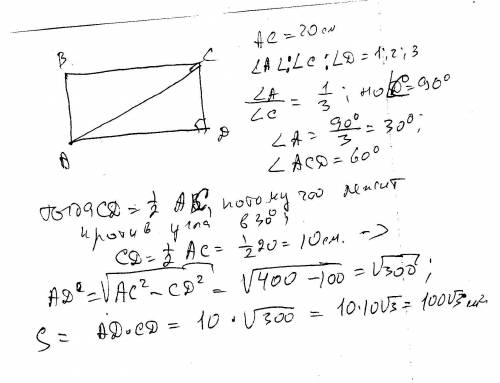 AC = 20 см
∠A : ∠C : ∠D = 1; 2; 3
∠A/∠C = 1/3 ; но = 90°
∠A = 90°/3 = 30° ;
∠ACD = 60°
B C
A D
тогда CD = 1/2 AC, потому что лежит
против угла в 30° ;
CD = 1/2 AC = 1/2 20 = 10 см. ->
AD² = √AC² - CD² = √400 - 100 = √300 ;
S = AD · CD = 10 · √300 = 10 · 10√3 = 100√3 см²